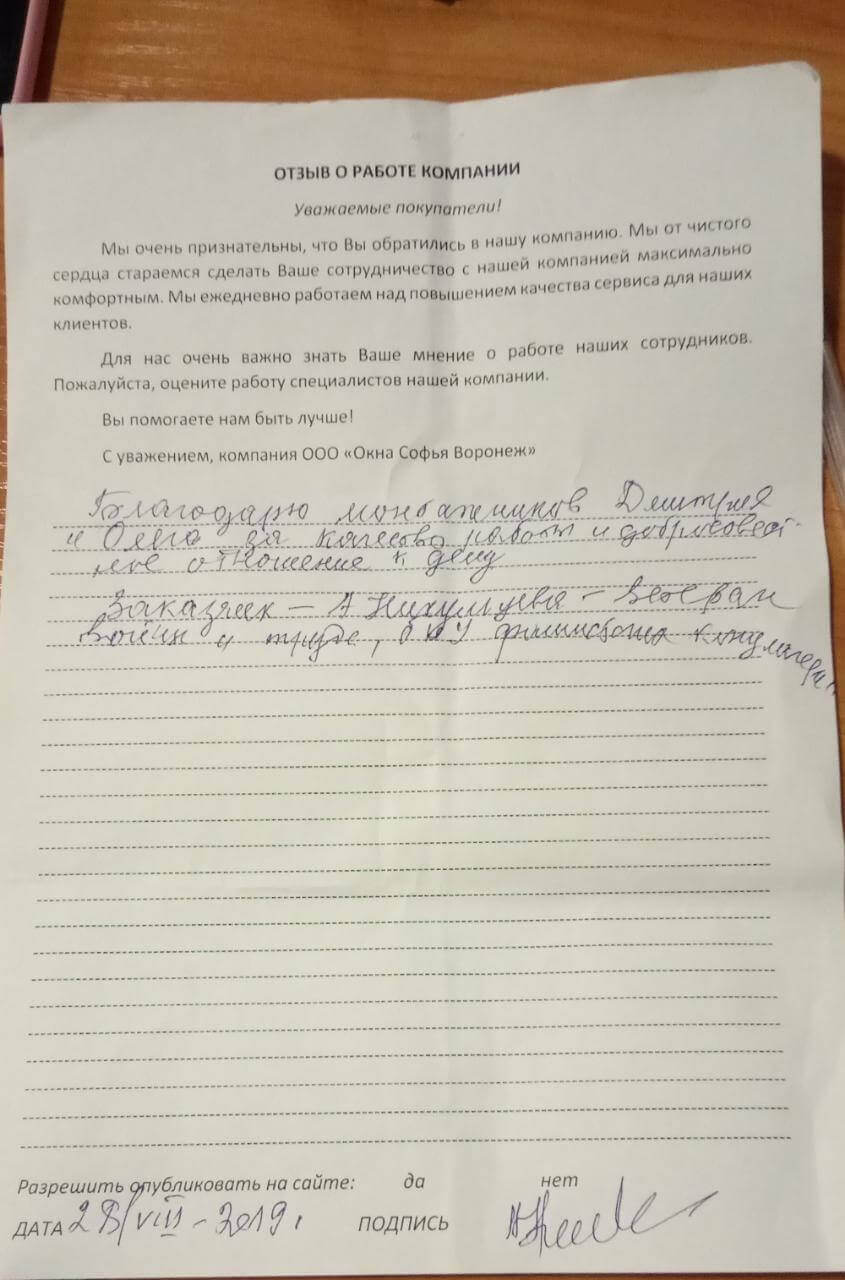 ОТЗЫВ О РАБОТЕ КОМПАНИИ
Уважаемые покупатели!
Мы очень признательны, что Вы обратились в нашу компанию. Мы от чистого
сердца стараемся сделать Ваше сотрудничество с нашей компанией максимально
комфортным. Мы ежедневно работаем над повышением качества сервиса для наших
клиентов.
Для нас очень важно знать Ваше мнение о работе наших сотрудников.
Пожалуйста, оцените работу специалистов нашей компании.
Вы помогаете нам быть лучше!
С уважением, компания ООО «Окна Софья Воронеж»
Благодарю монтажников Дмитрия
и Олега за качество работы и добросовест-
ное отношение к делу
Заказчик – А – Ветеран
Войны и труда,
Разрешить опубликовать на сайте: да нет
ДАТА 28/VIII - 2019г ПОДПИСЬ